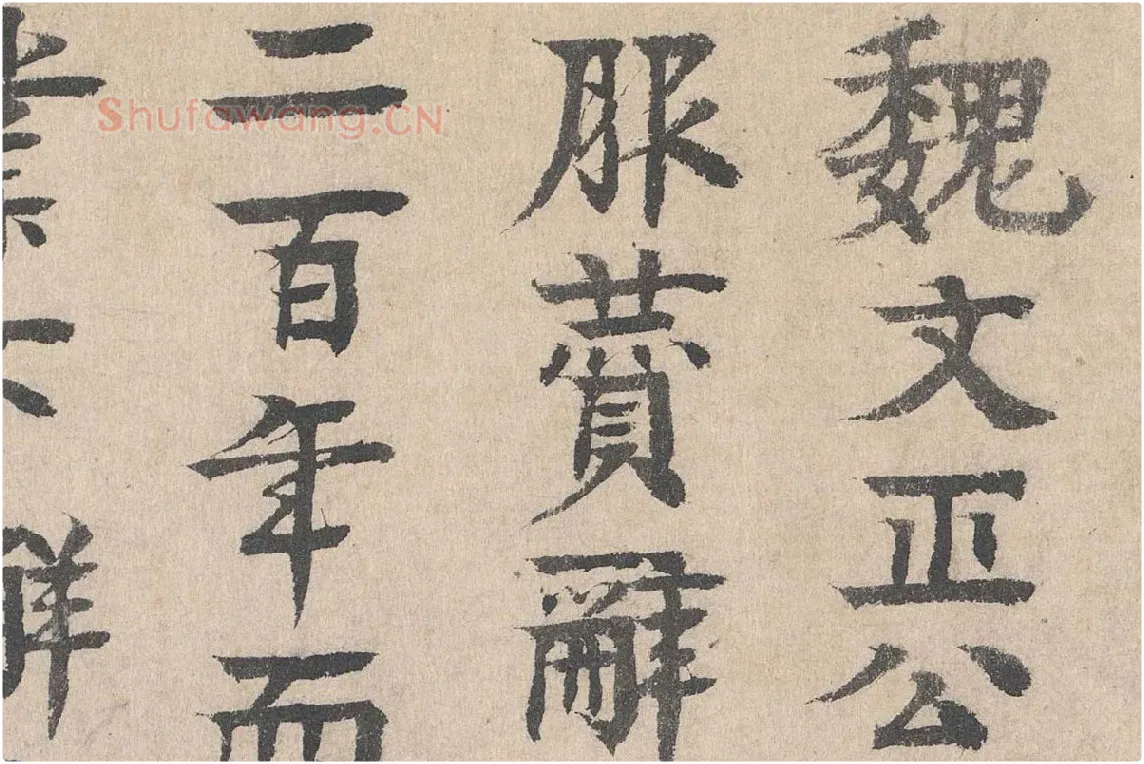 魏文正公
服辭
二百年而
Shufawang.CN